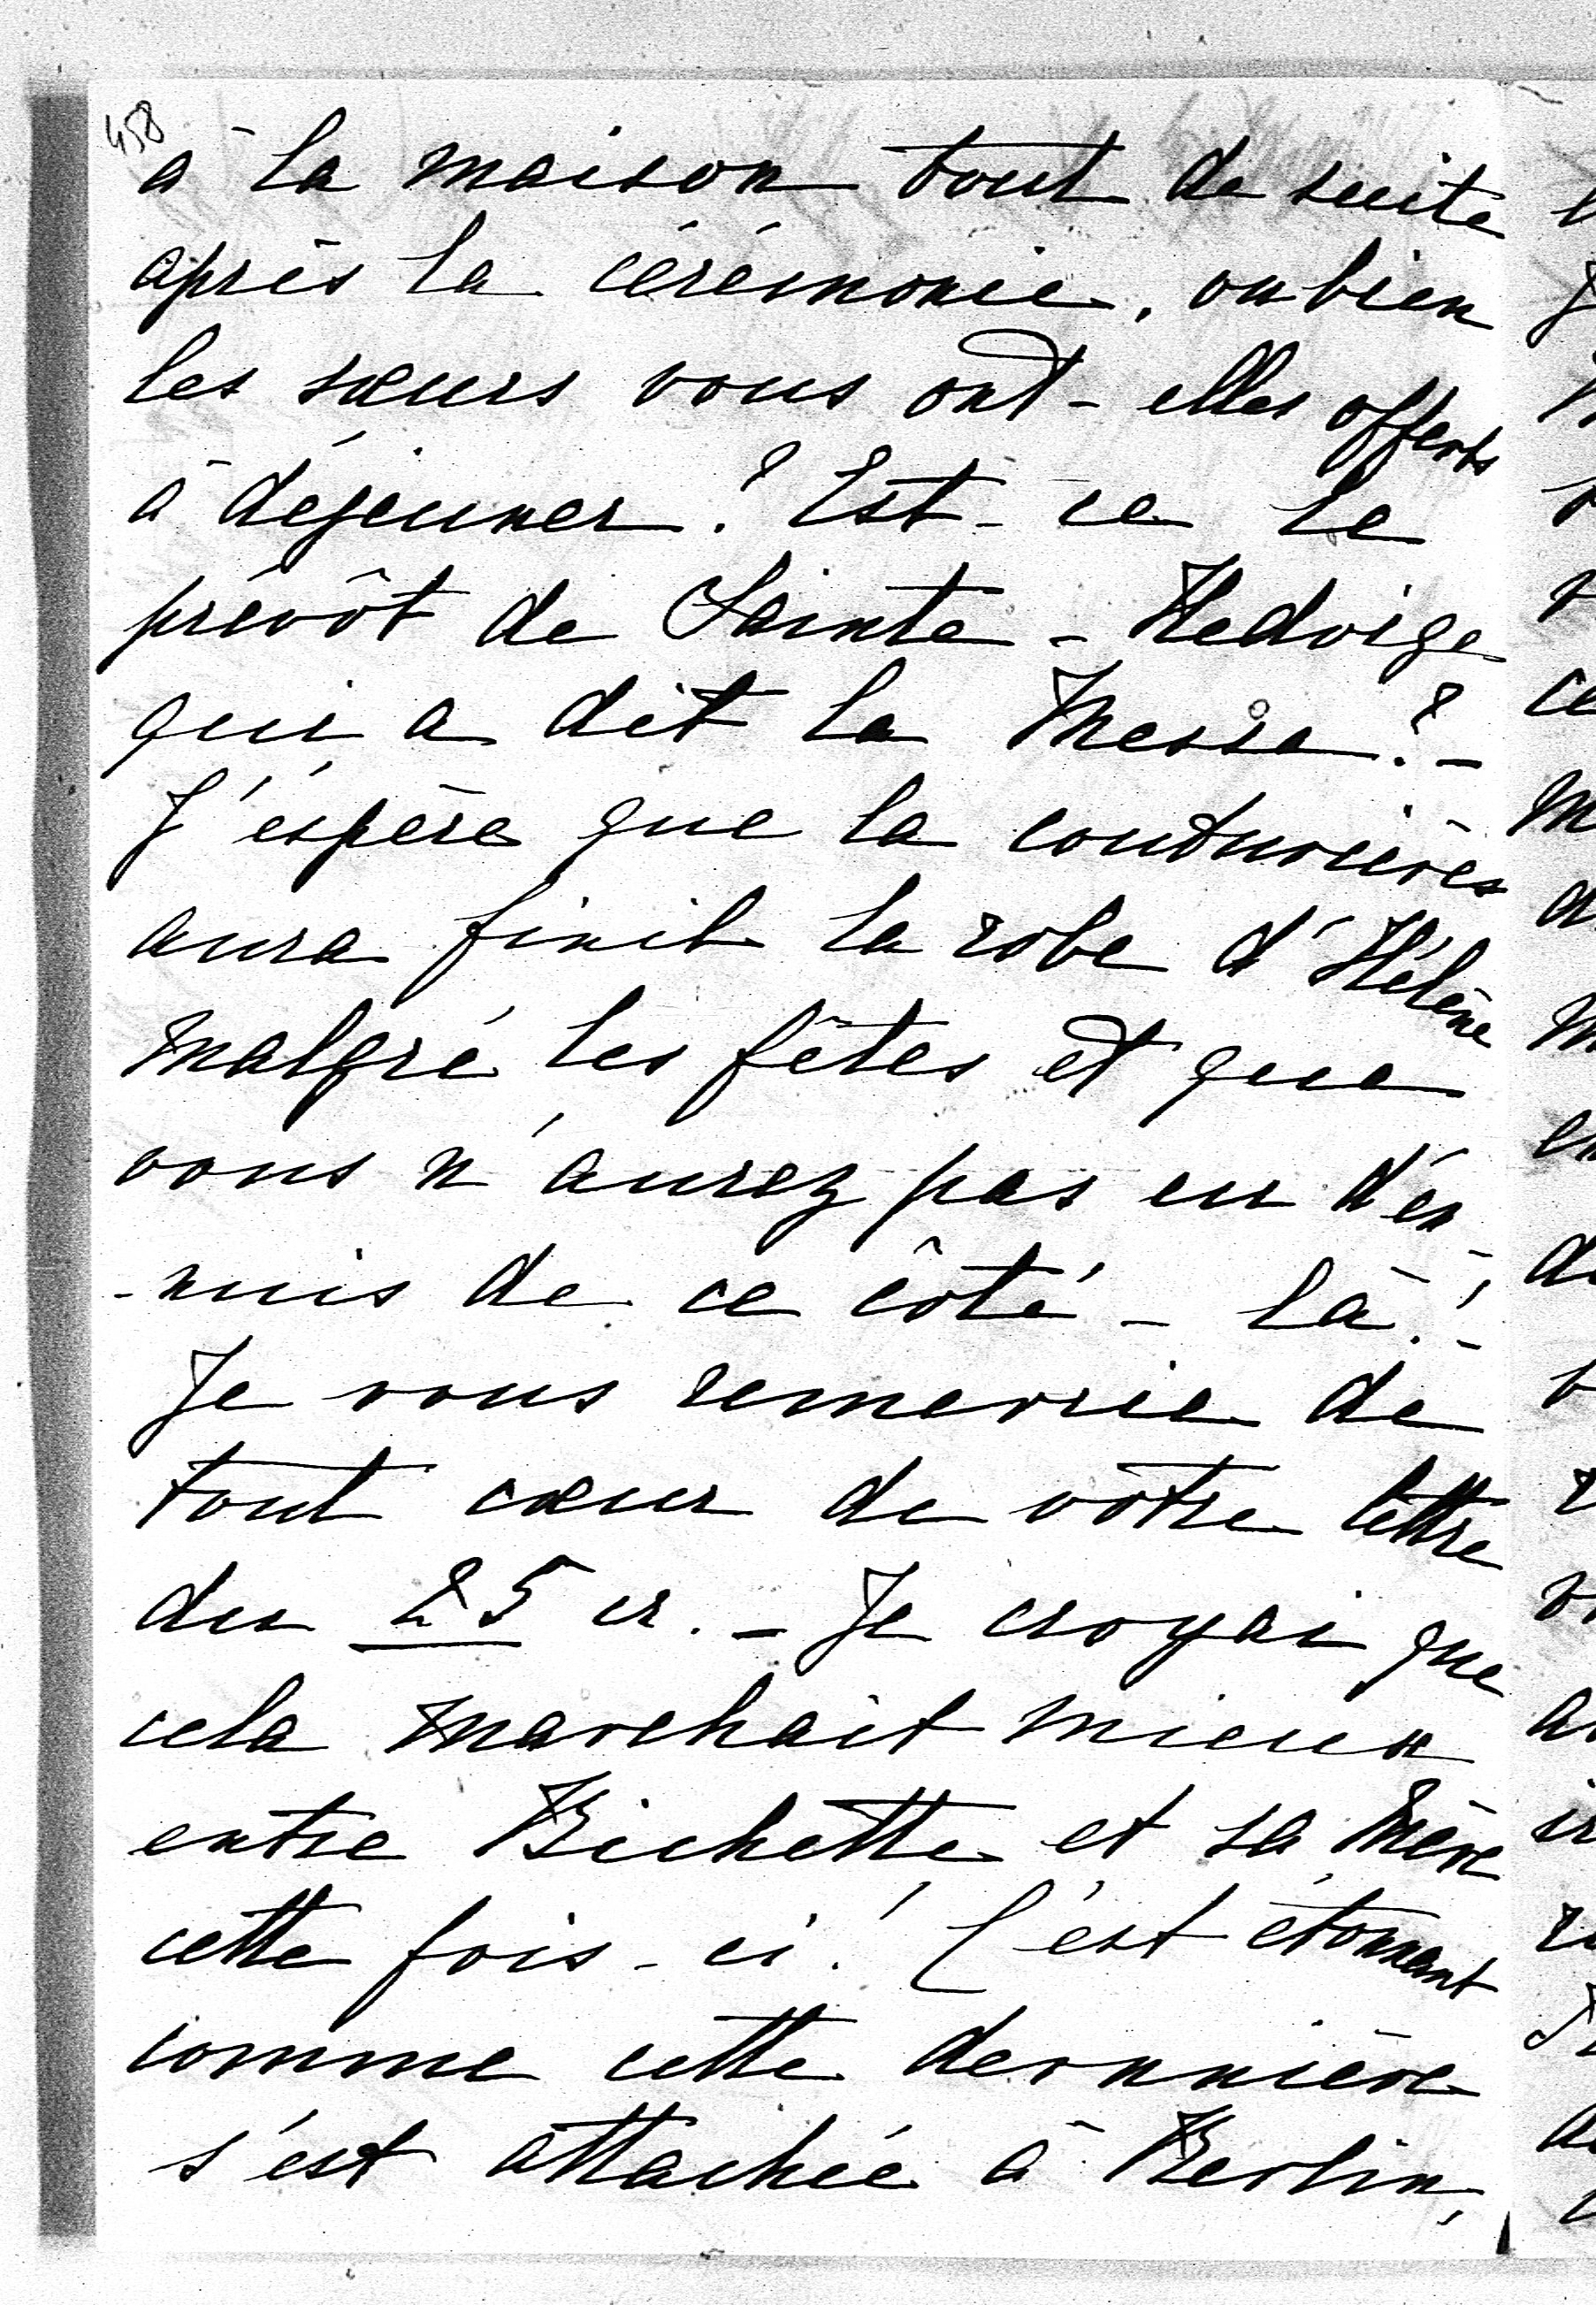 458
à la maison tout de suite
après la cérémonie, ou bien
les sœurs vous ont-elles offerts
à déjeuner? Est-ce le
prévôt de Sainte-Hedvige
qui a dit la Messe? -
J'espère que la couturière
aura finit la robe d'Hélène
malgré les fêtes et que
vous n'aurez pas eu d'en-
-nuis de ce côté-là! -
Je vous remercie de
tout cœur de vôtre lettre
du 25 cr. - Je croyai que
cela marchait mieux
entre Bichette et sa Mère
cette fois-ci! C'est étonnant
comme cette dernnière
s'est attachée à Berlin,